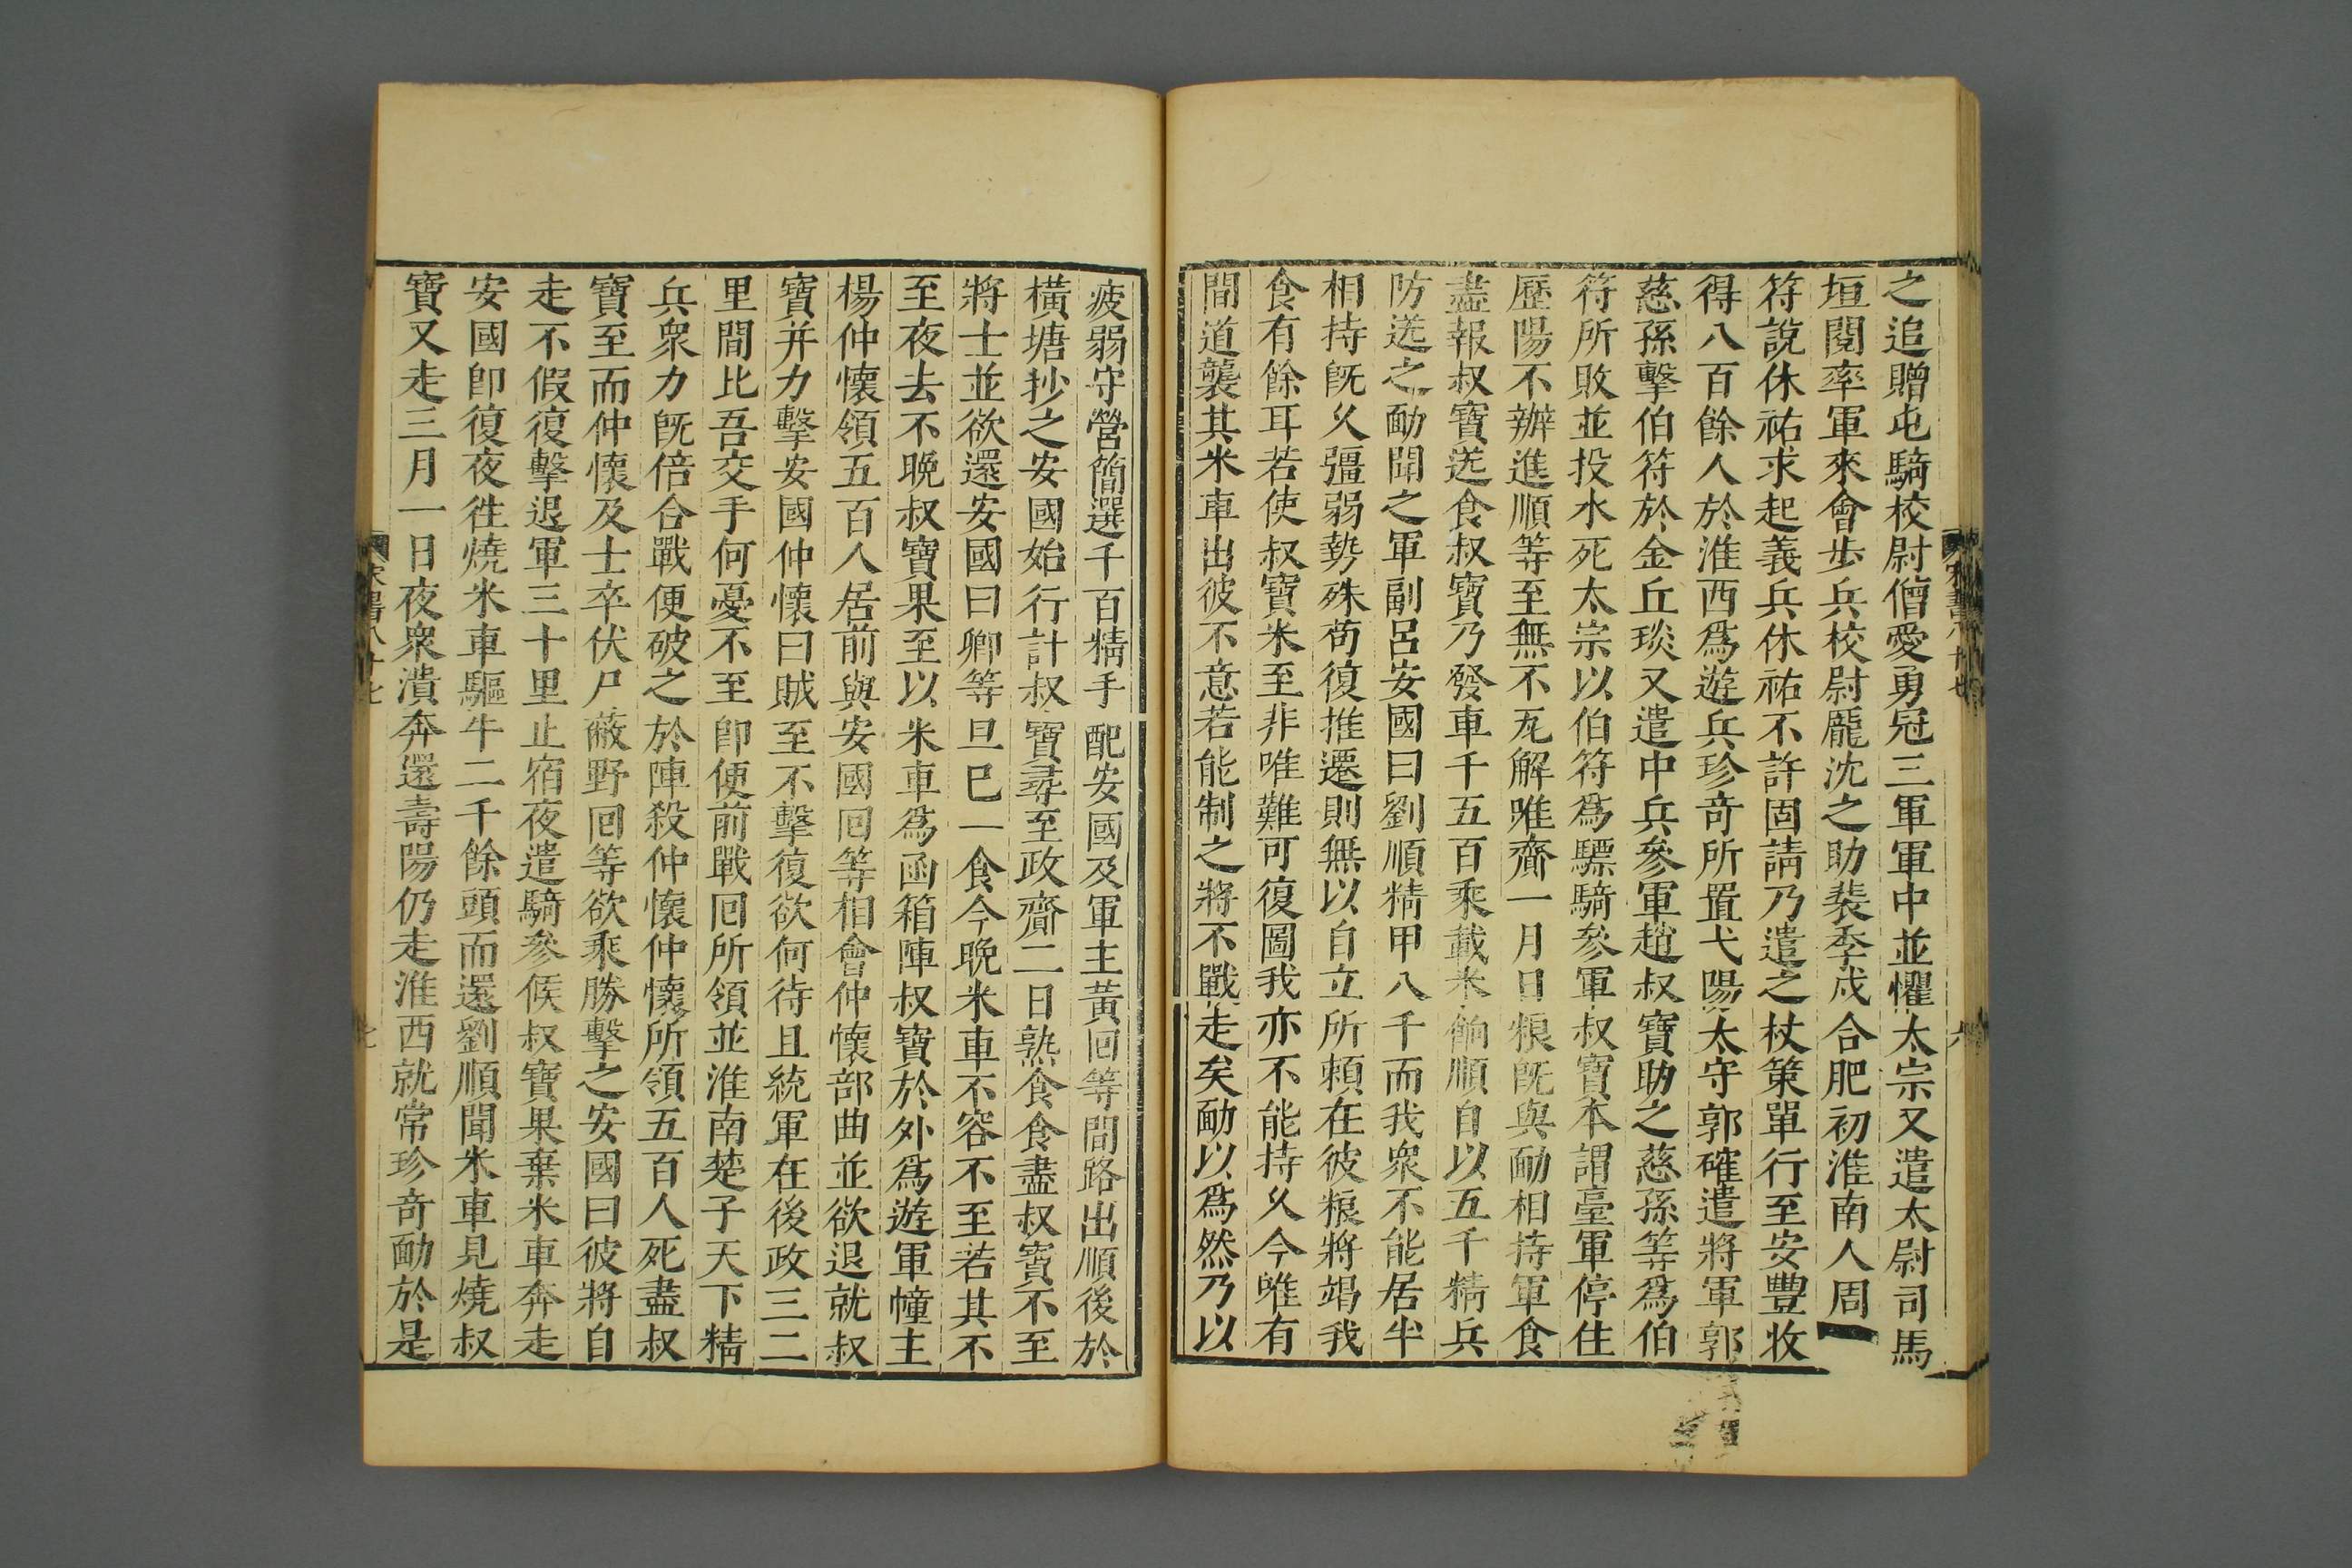 之追贈屯騎校尉僧愛勇冠三軍軍中並懼太宗又遣太尉司馬
垣閬率軍來會步兵校尉龐沈之助裴季戍合肥初淮南人周
符說休祐求起義兵休祐不許固請乃遣之杖策單行至安豐收
得八百餘人於淮西爲遊兵珍奇所置弋陽太守郭確遣將軍郭
慈孫擊伯符於金丘琰又遣中兵參軍趙叔寶助之慈孫等爲伯
符所敗並投水死太宗以伯符爲驃騎參軍叔寶本謂臺軍停住
歷陽不辦進順等至無不瓦解唯齎一月日粮既與勔相持軍食
盡報叔寶送食叔寶乃發車千五百乘載米餉順自以五千精兵
防送之勔聞之軍副呂安國曰劉順精甲八千而我衆不能居半
相持既久彊弱勢殊苟復推遷則無以自立所賴在彼粮將竭我
食有餘耳若使叔寶米至非唯難可復圖我亦不能持久今唯有
間道襲其米車出彼不意若能制之將不戰走矣勔以爲然乃以
疲弱守營簡選千百精手配安國及軍主黃回等間路出順後於
橫塘抄之安國始行計叔寶尋至政齎二日熟食食盡叔寶不至
將士並欲還安國曰卿等旦巳一食今晚米車不容不至若其不
至夜去不晚叔寶果至以米車爲函箱陣叔寶於外爲遊軍幢主
楊仲懷領五百人居前與安國回等相會仲懷部曲並欲退就叔
寶并力擊安國仲懷曰賊至不擊復欲何待且統軍在後政三二
里間比吾交手何憂不至卽便前戰回所領並淮南楚子天下精
兵衆力既倍合戰便破之於陣殺仲懷仲懷所領五百人死盡叔
寶至而仲懷及士卒伏尸蔽野回等欲乘勝擊之安國曰彼將自
走不假復擊退軍三十里止宿夜遣騎參候叔寶果棄米車奔走
安國卽復夜徃燒米車驅牛二千餘頭而還劉順聞米車見燒叔
寶又走三月一日夜衆潰奔還壽陽仍走淮西就常珍奇勔於是
宋書八十七
七